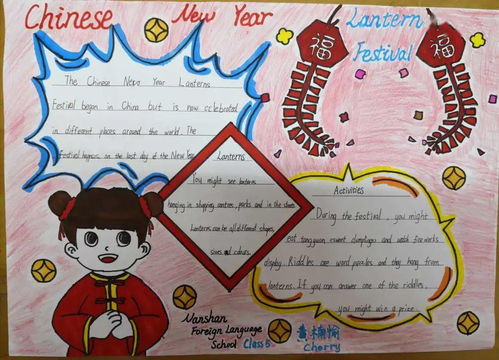 Chinese New Year
Lantern
Festival
福
福
The Chinese New Year Lanterns
Festival began in China but is now celebrated
in different places around the world. The
festival happens on the last day of the New Year
Lanterns
You might see lanterns
hanging in shopping centres, parks and in the streets
Lanterns can be all different shapes,
sizes and colours.
Activities
During the festival, you might
eat tangyuan, sweet dumplings and watch fireworks
display. Riddles are word puzzles and they hang from
lanterns. If you can answer one of the riddles,
you might win a prize
Nanshan
Foreign Language
School Class 5
Cherry